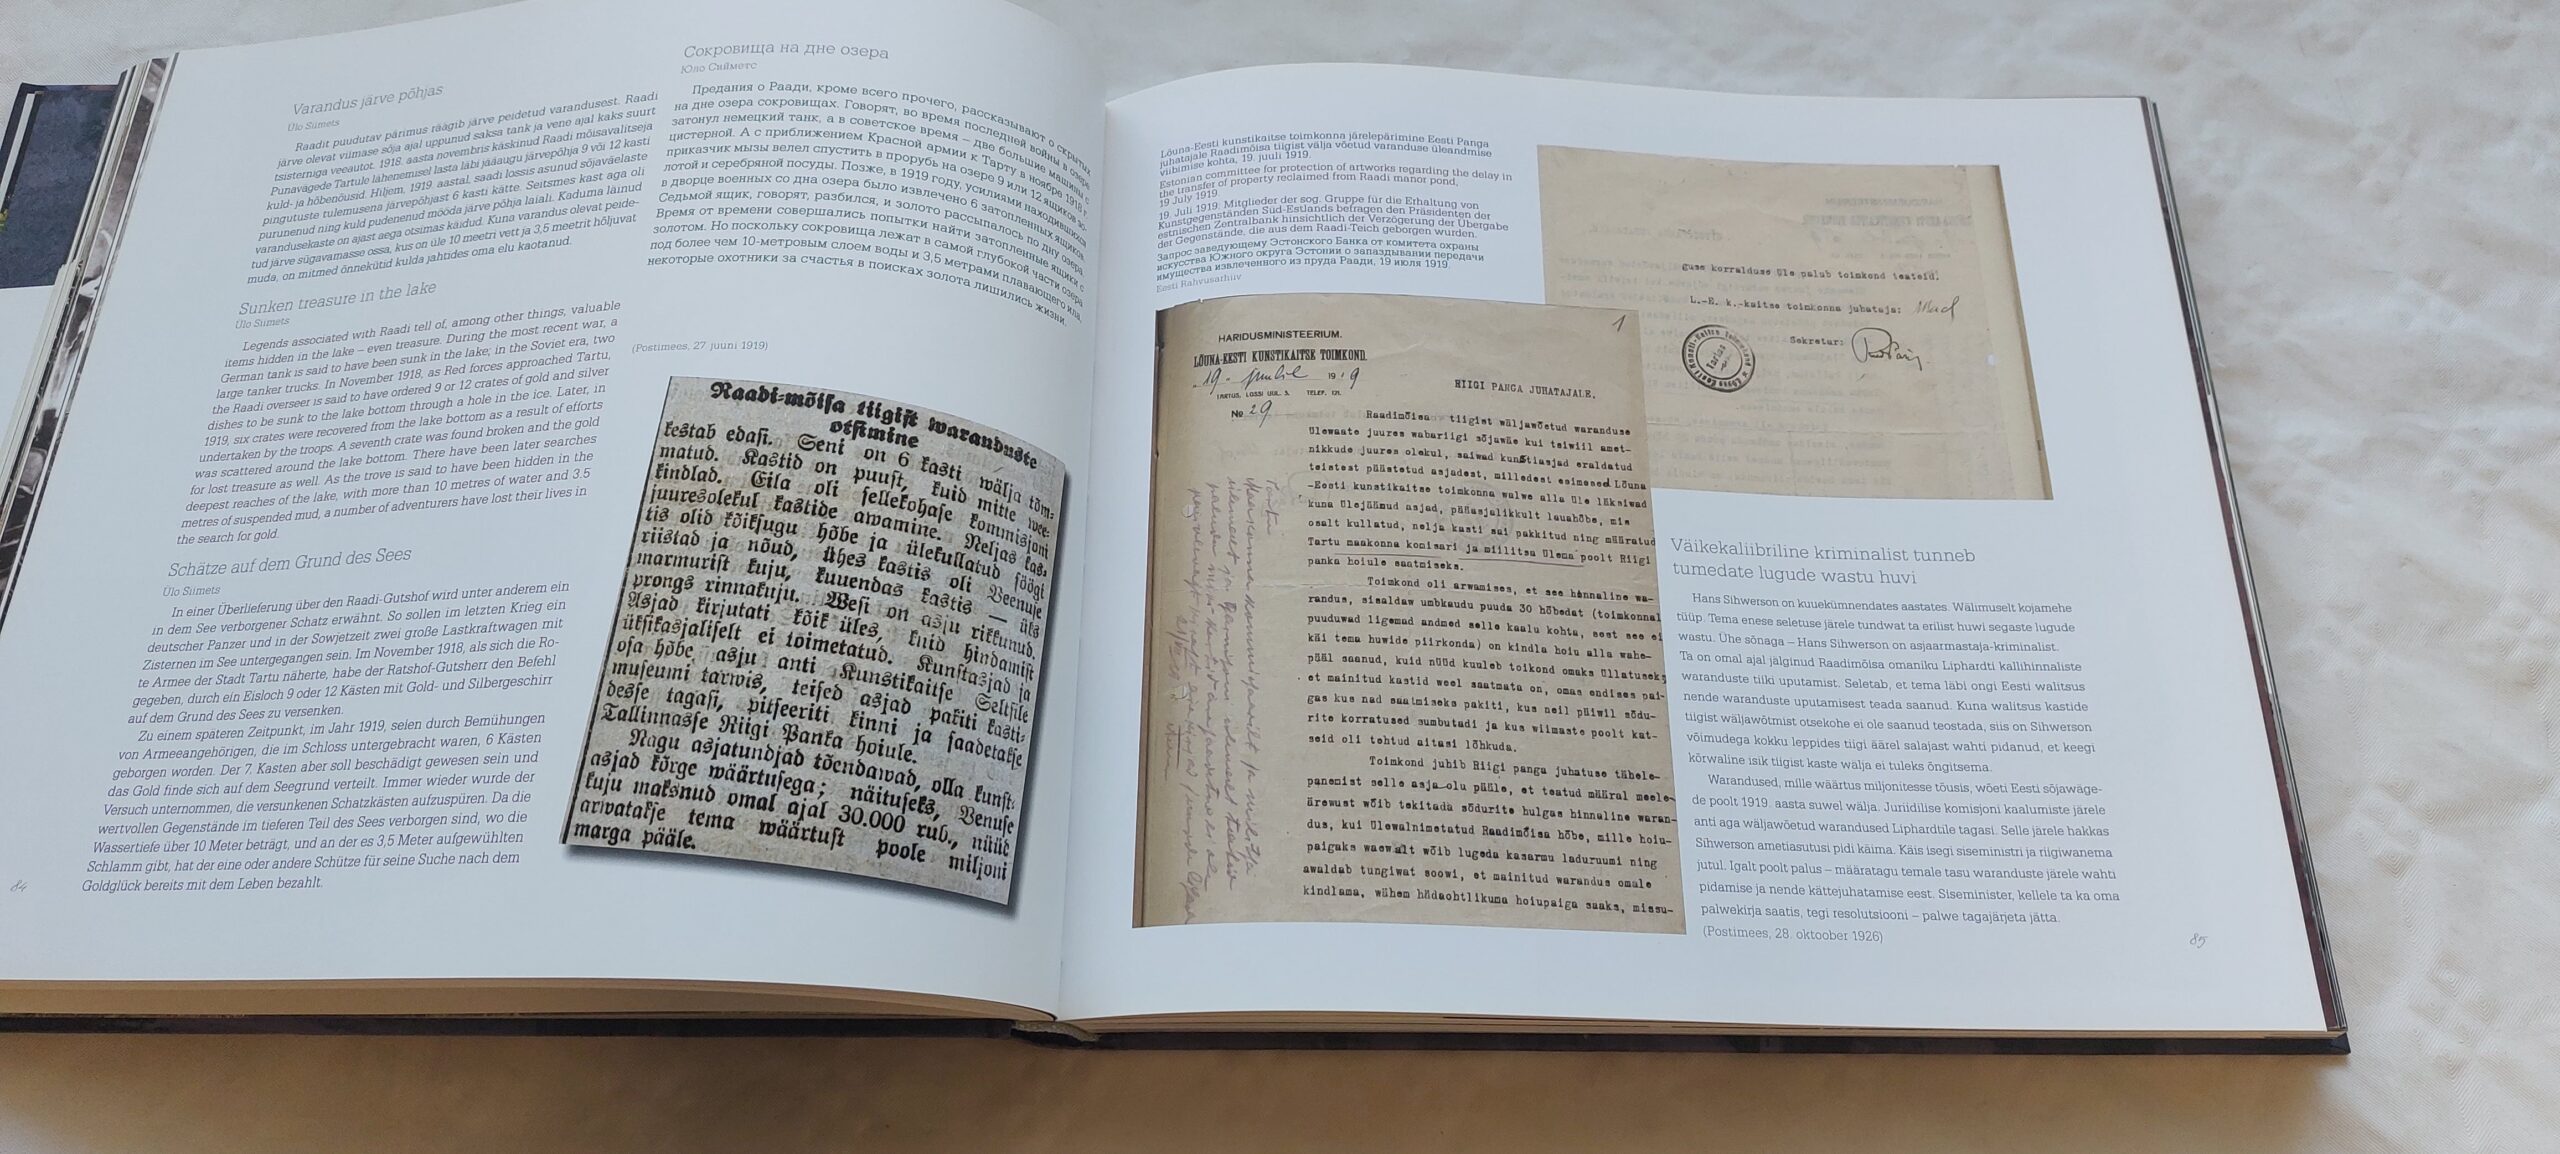 Varandus järve põhjas
Ülo Siimets
Raadit puudutav pärimus räägib järve peidetud varandusest. Raadi
järve olevat viimase sõja ajal uppunud saksa tank ja vene ajal kaks suurt
tsisterniga veeautot. 1918. aasta novembris käskinud Raadi mõisavalitseja
Punavägede Tartule lähenemisel lasta läbi jääaugu järvepõhja 9 või 12 kasti
kuld- ja hõbenõusid. Hiljem, 1919. aastal, saadi lossis asunud sõjaväelaste
pingutuste tulemusena järvepõhjast 6 kasti kätte. Seitsmes kast aga oli
purunenud ning kuld pudenenud mööda järve põhja laiali. Kaduma läinud
varandusekaste on ajast aega otsimas käidud. Kuna varandus olevat peide-
tud järve sügavamasse ossa, kus on üle 10 meetri vett ja 3,5 meetrit hõljuvat
muda, on mitmed õnnekütid kulda jahtides oma elu kaotanud.
Sunken treasure in the lake
Ülo Siimets
Legends associated with Raadi tell of, among other things, valuable
items hidden in the lake – even treasure. During the most recent war, a
German tank is said to have been sunk in the lake; in the Soviet era, two
large tanker trucks. In November 1918, as Red forces approached Tartu,
the Raadi overseer is said to have ordered 9 or 12 crates of gold and silver
dishes to be sunk to the lake bottom through a hole in the ice. Later, in
1919, six crates were recovered from the lake bottom as a result of efforts
undertaken by the troops. A seventh crate was found broken and the gold
was scattered around the lake bottom. There have been later searches
for lost treasure as well. As the trove is said to have been hidden in the
deepest reaches of the lake, with more than 10 metres of water and 3.5
metres of suspended mud, a number of adventurers have lost their lives in
the search for gold.
Schätze auf dem Grund des Sees
Ülo Siimets
In einer Überlieferung über den Raadi-Gutshof wird unter anderem ein
in dem See verborgener Schatz erwähnt. So sollen im letzten Krieg ein
deutscher Panzer und in der Sowjetzeit zwei große Lastkraftwagen mit
Zisternen im See untergegangen sein. Im November 1918, als sich die Ro-
te Armee der Stadt Tartu näherte, habe der Ratshof-Gutsherr den Befehl
gegeben, durch ein Eisloch 9 oder 12 Kästen mit Gold- und Silbergeschirr
auf dem Grund des Sees zu versenken.
Zu einem späteren Zeitpunkt, im Jahr 1919, seien durch Bemühungen
von Armeeangehörigen, die im Schloss untergebracht waren, 6 Kästen
geborgen worden. Der 7. Kasten aber soll beschädigt gewesen sein und
das Gold finde sich auf dem Seegrund verteilt. Immer wieder wurde der
Versuch unternommen, die versunkenen Schatzkästen aufzuspüren. Da die
wertvollen Gegenstände im tieferen Teil des Sees verborgen sind, wo die
Wassertiefe über 10 Meter beträgt, und an der es 3,5 Meter aufgewühlten
Schlamm gibt, hat der eine oder andere Schütze für seine Suche nach dem
Goldglück bereits mit dem Leben bezahlt.
84
Сокровища на дне озера
Юло Сийметс
Предания о Раади, кроме всего прочего, рассказывают о скрытых
на дне озера сокровищах. Говорят, во время последней войны в озере
затонул немецкий танк, а в советское время – две большие машины с
цистерной. А с приближением Красной армии к Тарту в ноябре 1918 г.
приказчик мызы велел спустить в прорубь на озере 9 или 12 ящиков зо-
лотой и серебряной посуды. Позже, в 1919 году, усилиями находившихся
в дворце военных со дна озера было извлечено 6 затопленных ящиков.
Седьмой ящик, говорят, разбился, и золото рассыпалось по дну озера.
Время от времени совершались попытки найти затопленные ящики с
золотом. Но поскольку сокровища лежат в самой глубокой части озера
под более чем 10-метровым слоем воды и 3,5 метрами плавающего ила,
некоторые охотники за счастья в поисках золота лишились жизни.
(Postimees, 27. juuni 1919)
Raadi-mõisa tiigist waranduste
otsimine
kestab edasi. Seni on 6 kasti wälja tõm-
matud. Kastid on puust, kuid mitte wee-
kindlad. Eila oli sellekohase kommisjoni
juuresolekul kastide awamine. Neljas kas-
tis olid kõiksugu hõbe ja ülekullatud söögi
riistad ja nõud, ühes kastis oli Veenuse
marmurist kuju, kuuendas kastis — üks
prongs rinnakuju. Wesi on asju rikkunud.
Asjad kirjutati kõik üles, kuid hindamist
üksikasjaliselt ei toimetatud. Kunstasjad ja
osa hõbe asju anti Kunstikaitse Seltsile
museumi tarwis, teised asjad pakiti kasti-
desse tagasi, pitseeriti kinni ja saadetakse
Tallinnasse Riigi Panka hoiule.
Nagu asjatundjad tõendawad, olla kunst-
asjad kõrge wäärtusega; näituseks, Venuse
kuju maksnud omal ajal 30.000 rub., nüüd
arwatakse tema wäärtust poole miljoni
marga pääle.
Lõuna-Eesti kunstikaitse toimkonna järelepärimine Eesti Panga
juhatajale Raadimõisa tiigist välja võetud varanduse üleandmise
viibimise kohta, 19. juuli 1919.
Estonian committee for protection of artworks regarding the delay in
the transfer of property reclaimed from Raadi manor pond,
19 July 1919.
19. Juli 1919. Mitglieder der sog. Gruppe für die Erhaltung von
Kunstgegenständen Süd-Estlands befragen den Präsidenten der
estnischen Zentralbank hinsichtlich der Verzögerung der Übergabe
der Gegenstände, die aus dem Raadi-Teich geborgen wurden.
Запрос заведующему Эстонского Банка от комитета охраны
искусства Южного округа Эстонии о запаздывании передачи
имущества извлеченного из пруда Раади, 19 июля 1919.
Eesti Rahvusarhiiv
1
HARIDUSMINISTEERIUM.
LÕUNA-EESTI KUNSTIKAITSE TOIMKOND.
„19“ juulil 1919
TARTUS, LOSSI UUL. 3. TELEF. 121.
No 29
RIIGI PANGA JUHATAJALE.
Raadimõisa tiigist wäljawõetud waranduse
ülewaate juures wabariigi sõjawäe kui teiwiil amet-
nikkude juures olekul, saiwad kunstiasjad eraldatud
teistest päästetud asjadest, milledest esimesed Lõuna
-Eesti kunstikaitse toimkonna walwe alla üle läksiwad
kuna ülejäänud asjad, pääasjalikkult lauahõbe, mis
osalt kullatud, nelja kasti sai pakkitud ning määratud
Tartu maakonna komisari ja miilitsa ülema poolt Riigi
panka hoiule saatmiseks.
Toimkond oli arwamises, et see hinnaline wa-
randus, sisaldaw umbkaudu puuda 30 hõbedat (toimkonnal
puuduwad ligemad andmed selle kaalu kohta, sest see ei
käi tema huwide piirkonda) on kindla hoiu alla wahe-
pääl saanud, kuid nüüd kuuleb toikond omaks üllatuseks
et mainitud kastid weel saatmata on, omas endises pai-
gas kus nad saatmiseks pakiti, kus neil päiwil sõdu-
rite korratused sumbutadi ja kus wiimaste poolt kat-
seid oli tehtud aitasi lõhkuda.
Toimkond juhib Riigi panga juhatuse tähele-
panemist selle asja olu pääle, et teatud määral meele-
ärewust wõib tekitada sõdurite hulgas hinnaline waran-
dus, kui ülewalnimetatud Raadimõisa hõbe, mille hoiu-
paigaks waewalt wõib lugeda kasarmu laduruumi ning
awaldab tungiwat soowi, et mainitud warandus omale
kindlama, wähem hädaohtlikuma hoiupaiga saaks, missu-
guse korralduse üle palub toimkond teateid.
L.-E. k.-kaitse toimkonna juhataja:
Sekretär:
Väikekaliibriline kriminalist tunneb
tumedate lugude wastu huvi
Hans Sihwerson on kuuekümnendates aastates. Wälimuselt kojamehe
tüüp. Tema enese seletuse järele tundwat ta erilist huwi segaste lugude
wastu. Ühe sõnaga – Hans Sihwerson on asjaarmastaja-kriminalist.
Ta on omal ajal jälginud Raadimõisa omaniku Liphardti kallihinnaliste
waranduste tiiki uputamist. Seletab, et tema läbi ongi Eesti walitsus
nende waranduste uputamisest teada saanud. Kuna walitsus kastide
tiigist wäljawõtmist otsekohe ei ole saanud teostada, siis on Sihwerson
võimudega kokku leppides tiigi äärel salajast wahti pidanud, et keegi
kõrwaline isik tiigist kaste wälja ei tuleks õngitsema.
Warandused, mille wäärtus miljonitesse tõusis, wõeti Eesti sõjawäge-
de poolt 1919. aasta suwel wälja. Juriidilise komisjoni kaalumiste järele
anti aga wäljawõetud warandused Liphardtile tagasi. Selle järele hakkas
Sihwerson ametiasutusi pidi käima. Käis isegi siseministri ja riigiwanema
jutul. Igalt poolt palus – määratagu temale tasu waranduste järele wahti
pidamise ja nende kättejuhatamise eest. Siseminister, kellele ta ka oma
palwekirja saatis, tegi resolutsiooni – palwe tagajärjeta jätta.
(Postimees, 28. oktoober 1926)
85